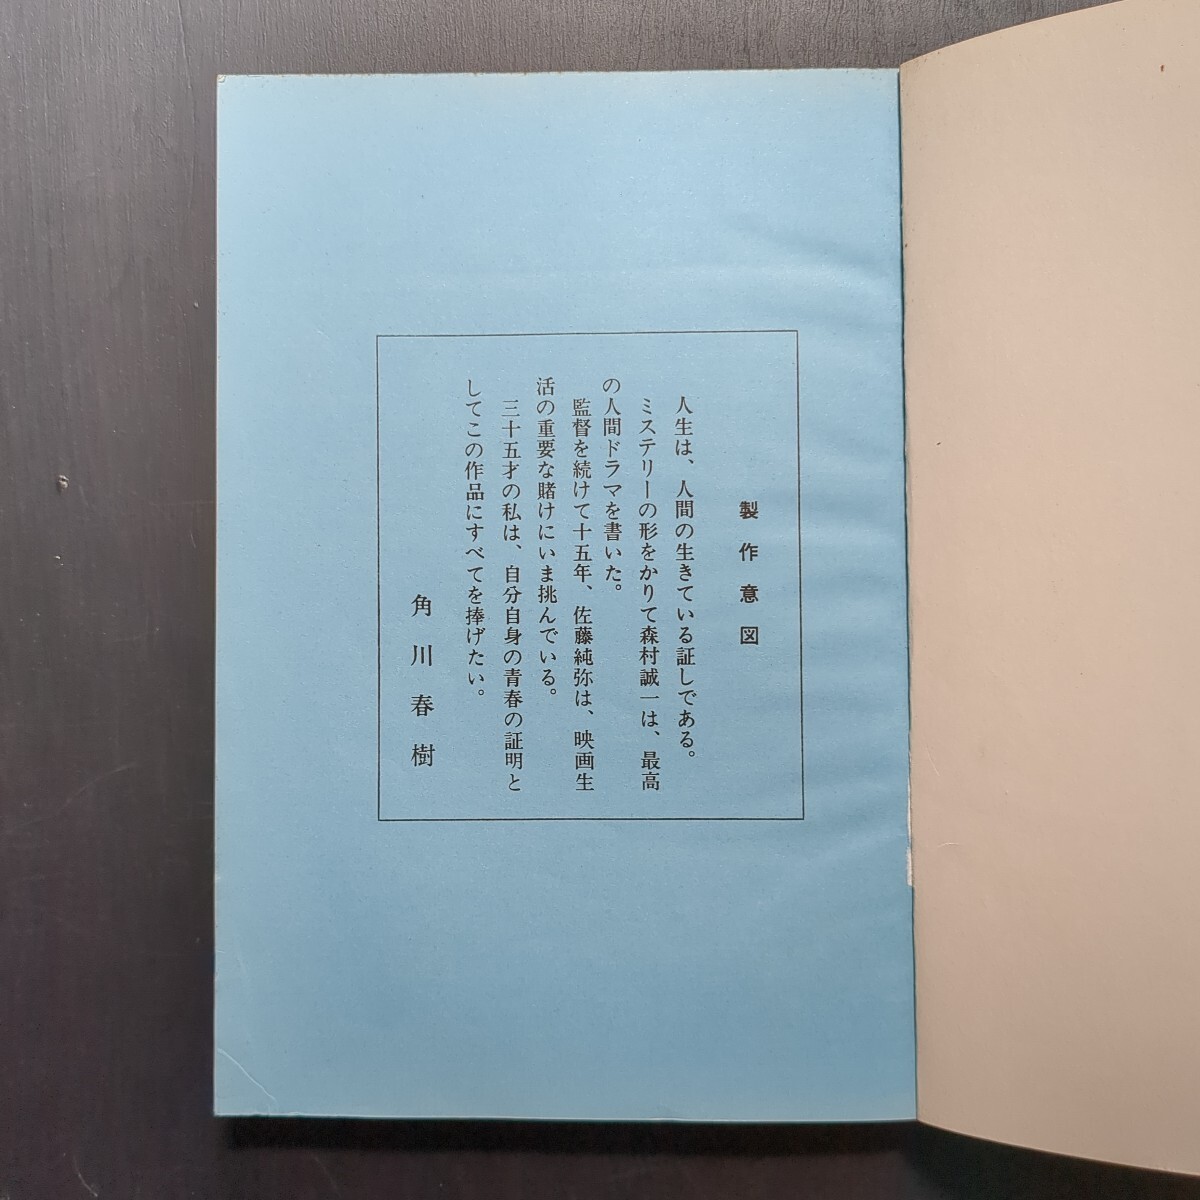 製作意図
人生は、人間の生きている証しである。
ミステリーの形をかりて森村誠一は、最高
の人間ドラマを書いた。
監督を続けて十五年、佐藤純弥は、映画生
活の重要な賭けにいま挑んでいる。
三十五才の私は、自分自身の青春の証明と
してこの作品にすべてを捧げたい。
角川春樹